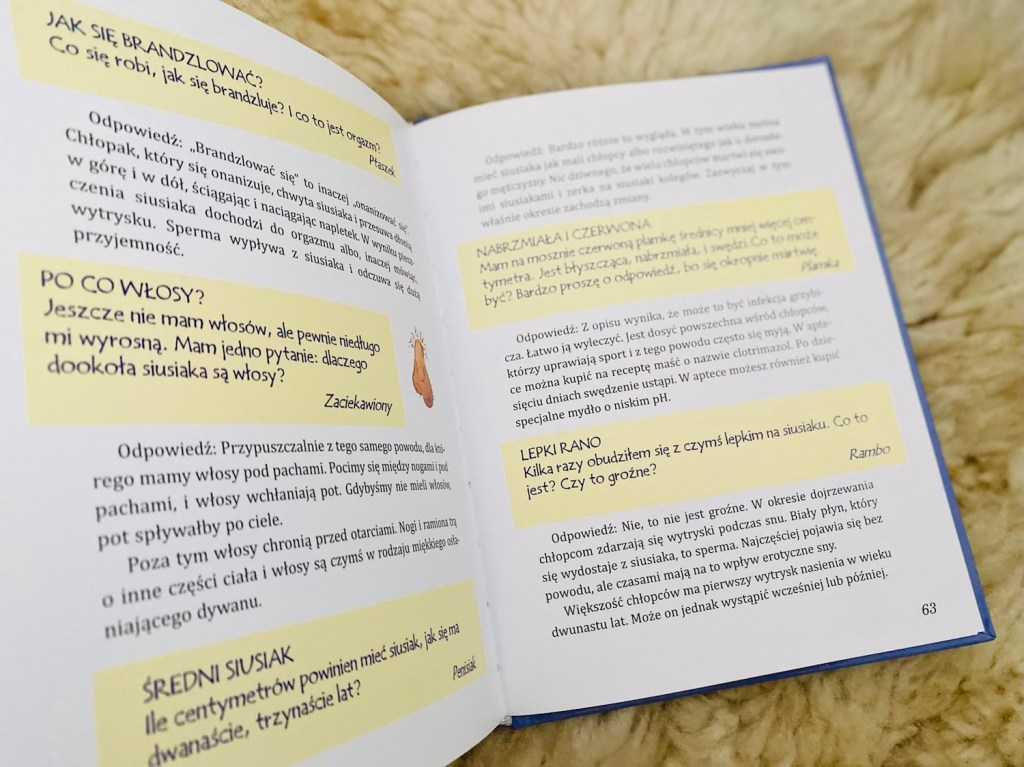 JAK SIĘ BRANDZLOWAĆ?
Co się robi, jak się brandzluje? I co to jest orgazm?
Ptaszek
Odpowiedź: „Brandzlować się" to inaczej „onanizować się".
Chłopak, który się onanizuje, chwyta siusiaka i przesuwa dłonią
w górę i w dół, ściągając i naciągając napletek. W wyniku piesz-
czenia siusiaka dochodzi do orgazmu albo, inaczej mówiąc,
wytrysku. Sperma wypływa z siusiaka i odczuwa się dużą
przyjemność.
PO CO WŁOSY?
Jeszcze nie mam włosów, ale pewnie niedługo
mi wyrosną. Mam jedno pytanie: dlaczego
dookoła siusiaka są włosy?
Zaciekawiony
Odpowiedź: Przypuszczalnie z tego samego powodu, dla któ-
rego mamy włosy pod pachami. Pocimy się między nogami i pod
pachami, i włosy wchłaniają pot. Gdybyśmy nie mieli włosów,
pot spływałby po ciele.
Poza tym włosy chronią przed otarciami. Nogi i ramiona trą
o inne części ciała i włosy są czymś w rodzaju miękkiego osła-
niającego dywanu.
ŚREDNI SIUSIAK
Ile centymetrów powinien mieć siusiak, jak się ma
dwanaście, trzynaście lat?
Penisiak
Odpowiedź: Bardzo różnie to wygląda. W tym wieku można
mieć siusiaka jak mali chłopcy albo rozwiniętego jak u dorosłe-
go mężczyzny. Nic dziwnego, że wielu chłopców martwi się swo-
imi siusiakami i zerka na siusiaki kolegów. Zazwyczaj w tym
właśnie okresie zachodzą zmiany.
NABRZMIAŁA I CZERWONA
Mam na mosznie czerwoną plamkę średnicy mniej więcej cen-
tymetra. Jest błyszcząca, nabrzmiała, i swędzi. Co to może
być? Bardzo proszę o odpowiedź, bo się okropnie martwię.
Plamka
Odpowiedź: Z opisu wynika, że może to być infekcja grzybi-
cza. Łatwo ją wyleczyć. Jest dosyć powszechna wśród chłopców,
którzy uprawiają sport i z tego powodu często się myją. W apte-
ce można kupić na receptę maść o nazwie clotrimazol. Po dzie-
sięciu dniach swędzenie ustąpi. W aptece możesz również kupić
specjalne mydło o niskim pH.
LEPKI RANO
Kilka razy obudziłem się z czymś lepkim na siusiaku. Co to
jest? Czy to groźne?
Rambo
Odpowiedź: Nie, to nie jest groźne. W okresie dojrzewania
chłopcom zdarzają się wytryski podczas snu. Biały płyn, który
się wydostaje z siusiaka, to sperma. Najczęściej pojawia się bez
powodu, ale czasami mają na to wpływ erotyczne sny.
Większość chłopców ma pierwszy wytrysk nasienia w wieku
dwunastu lat. Może on jednak wystąpić wcześniej lub później.
63